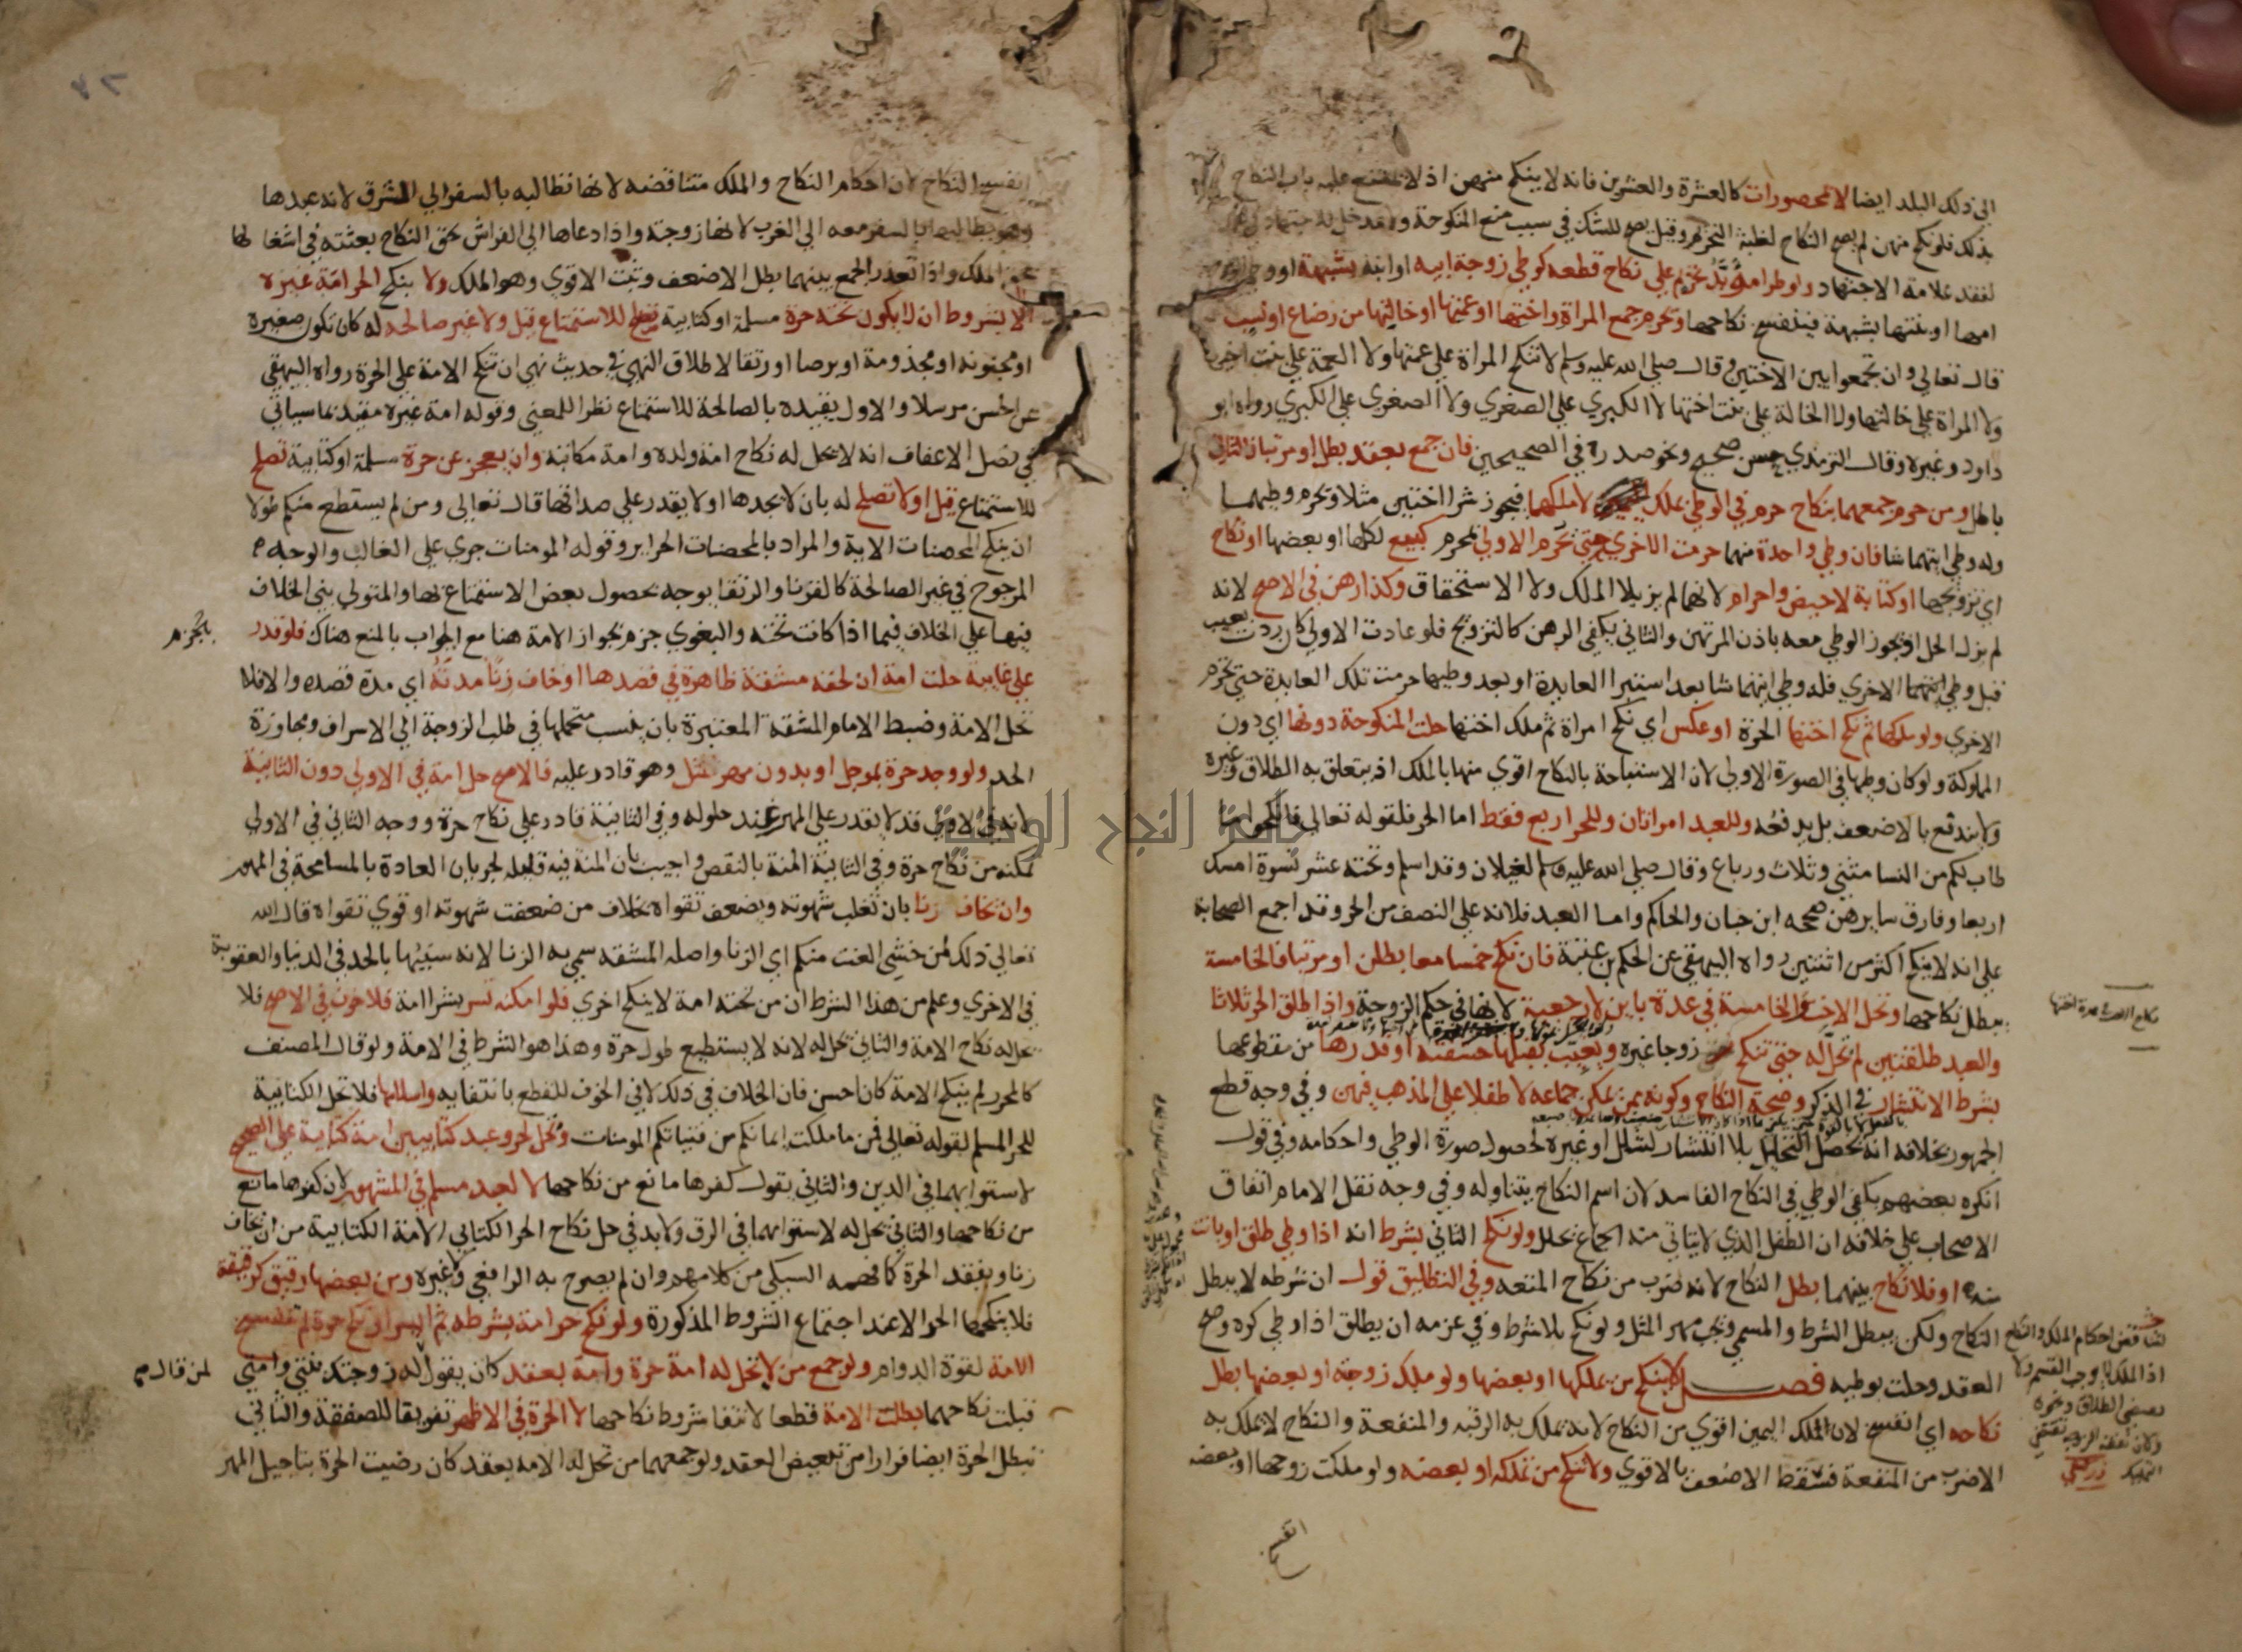 الي ذلك البلد ايضا لا محصورات كالعشرة والعشرين فانه لا ينكح منهن اذ لا ينقطع عليه باب النكاح
بذلك فلو نكح منهن لم يصح النكاح لغلبة التحريم وقيل يصح للشك في سبب منع المنكوحة ولا مدخل للاجتهاد في
لفقد علامة الاجتهاد ولو طرا مؤبد تحريم علي نكاح قطعه كوطي زوجة ابيه او ابنه بشبهة او وطي الزوج
امها او بنتها بشبهة فينفسخ نكاحها وتحرم جمع المراة واختها او عمتها او خالتها من رضاع او نسب
قال تعالي وان تجمعوا بين الاختين وقال صلي الله عليه وسلم لا تنكح المراة علي عمتها ولا العمة علي بنت اخيها
ولا المراة علي خالتها ولا الخالة علي بنت اختها لا الكبري علي الصغري ولا الصغري علي الكبري رواه ابو
داود وغيره وقال الترمذي حسن صحيح ونحو صدره في الصحيحين فان جمع بعقد بطل او مرتبا فالثاني
باطل ومن حرم جمعهما بنكاح حرم في الوطي بملك لا ملكهما فيجوز شرا اختين مثلا وتحرم وطيهما
وله وطي ايتهما شا فان وطي واحدة منهما حرمت الاخري حتي تحرم الاولي بمحرم كبيع لكلها او بعضها او نكاح
اي تزويجها او كتابة لا حيض واحرام لانهما لم يزيلا الملك ولا الاستحقاق وكذا رهن في الاصح لانه
لم يزل الحل اذ يجوز الوطي معه باذن المرتهن والثاني يكفي الرهن كالتزويج فلو عادت الاولي كان ردت بعيب
قبل وطي الاخري فله وطي ايتهما شا بعد استبرا العايدة او بعد وطيها حرمت تلك العايدة حتي تحرم
الاخري ولو ملكها ثم نكح اختها الحرة او عكس اي نكح امراة ثم ملك اختها حلت المنكوحة دونها اي دون
المملوكة ولو كان وطيها في الصورة الاولي لان الاستباحة بالنكاح اقوي منها بالملك اذ يتعلق به الطلاق وغيره
ولا يندفع بالاضعف بل يدفعه وللعبد امراتان وللحر اربع فقط اما الحر فلقوله تعالي فانكحوا ما
طاب لكم من النسا مثني وثلاث ورباع وقال صلي الله عليه وسلم لغيلان وقد اسلم وتحته عشر نسوة امسك
اربعا وفارق سايرهن صححه ابن حبان والحاكم واما العبد فلانه علي النصف من الحر وقد اجمع الصحابة
علي انه لا ينكح اكثر من اثنتين رواه البيهقي عن الحكم بن عتيبة فان نكح خمسا معا بطلن او مرتبا فالخامسة
يبطل نكاحها وتحل الاخت والخامسة في عدة باين لا رجعية لانها في حكم الزوجة واذا طلق الحر ثلاثا
والعبد طلقتين لم تحل له حتي تنكح زوجا غيره وتغيب بقبلها حشفته او قدرها من مقطوعها
بشرط الانتشار في الذكر وصحة النكاح وكونه ممن يمكن جماعه لا طفلا علي المذهب فيهن وفي وجه قطع
الجمهور بخلافه انه يحصل التحليل بلا انتشار لشلل او غيره لحصول صورة الوطي واحكامه وفي قول
انكره بعضهم يكفي الوطي في النكاح الفاسد لان اسم النكاح يتناوله وفي وجه نقل الامام اتفاق
الاصحاب علي خلافه ان الطفل الذي لا يتاتي منه الجماع يحلل ولو نكح الثاني بشرط انه اذا وطي طلق او بانت
منه او فلا نكاح بينهما بطل النكاح لانه ضرب من نكاح المتعه وفي التطليق قول ان شرطه لا يبطل
النكاح ولكن يبطل الشرط والمسمي ويجب مهر المثل ولو نكح بلا شرط وفي عزمه ان يطلق اذا وطي كره وصح
العقد وحلت بوطيه فصل لا ينكح من يملكها او بعضها ولو ملك زوجته او بعضها بطل
نكاحه اي انفسخ لان الملك اليمين اقوي من النكاح لانه يملك به الرقبه والمنفعة والنكاح لا يملك به
الا ضرب من المنفعة فسقط الاضعف بالاقوي ولا تنكح من تملكه او بعضه ولو ملكت زوجها او بعضه
انفسخ
لتناقض احكام الملك والنكاح
اذ الملك لا يوجب القسم ولا
يقتضي الطلاق ونحوه
زركشي
انفسخ النكاح لان احكام النكاح والملك متناقضه لانها تطالبه بالسفر الي المشرق لانه عبدها
وهو يطالبها بالسفر معه الي الغرب لانها زوجته واذا دعاها الي الفراش بحق النكاح بعثته في اشغالها
بحق الملك واذا تعذر الجمع بينهما بطل الاضعف وثبت الاقوي وهو الملك ولا ينكح الحر امة غيره
الا بشروط ان لا يكون تحته حرة مسلمة او كتابية تصلح للاستمتاع قيل ولا غير صالحه له كان تكون صغيره
او مجنونه او مجذومة او برصا او رتقا لاطلاق النهي في حديث نهي ان تنكح الامة علي الحرة رواه البيهقي
عن الحسن مرسلا والاول يقيده بالصالحة للاستمتاع نظرا للمعني وقوله امة غيره مقيد بما سياتي
في فصل الاعفاف انه لا يحل له نكاح امة ولده وامة مكاتبه وان يعجز عن حرة مسلمة او كتابية تصلح
للاستمتاع قيل او لا تصلح له بان لا يجدها او لا يقدر علي صداقها قال تعالي ومن لم يستطع منكم طولا
ان ينكح المحصنات الاية والمراد بالمحصنات الحراير وقوله المومنات جري علي الغالب والوجه
المرجوح في غير الصالحة كالقرنا والرتقا يوجه بحصول بعض الاستمتاع بها والمتولي بني الخلاف
فيها علي الخلاف فيما اذا كانت تحته والبغوي جزم بجواز الامة هنا مع الجواب بالمنع هناك فلو قدر
علي غايبة حلت امة ان لحقه مشقة ظاهرة في قصدها او خاف زنا مدته اي مدة قصده والا فلا
تحل الامة وضبط الامام المشقه المعتبرة بان ينسب متحملها في طلب الزوجة الي الاسراف ومجاوزة
الحد ولو وجد حرة بموجل او بدون مهر مثل وهو قادر عليه فالاصح حل امة في الاولي دون الثانية
لانه في الاولي قد لا يقدر علي المهر عند حلوله وفي الثانية قادر علي نكاح حرة ووجه الثاني في الاولي
تمكنه من نكاح حرة وفي الثانية المنة بالنقص واجيب بان المنة فيه قليله لجريان العادة بالمسامحة في المهور
وان يخاف زنا بان تغلب شهوته ويضعف تقواه بخلاف من ضعفت شهوته او قوي تقواه قال الله
تعالي ذلك لمن خشي العنت منكم اي الزنا واصله المشقه سمي به الزنا لانه سببها بالحد في الدنيا والعقوبة
في الاخري وعلم من هذا الشرط ان من تحته امة لا ينكح اخري فلو امكنه تسر بشرا امة فلا خوف في الاصح فلا
يحل له نكاح الامة والثاني تحل له لانه لا يستطيع طول حرة وهذا هو الشرط في الامة ولو قال المصنف
كالمحرر لم ينكح الامة كان احسن فان الخلاف في ذلك لا في الخوف للقطع بانتفايه واسلامها فلا تحل الكتابية
للحر المسلم لقوله تعالي فمن ما ملكت ايمانكم من فتياتكم المومنات وتحل لحر وعبد كتابيين امة كتابية علي الصحيح
لاستوايهما في الدين والثاني يقول كفرها مانع من نكاحها لا لعبد مسلم في المشهور لان كفرها مانع
من نكاحها والثاني تحل له لاستوايهما في الرق ولابد في حل نكاح الحر الكتابي الامة الكتابية من ان يخاف
زنا ويفقد الحرة كما فهمه السبكي من كلامهم وان لم يصرح به الرافعي ولا غيره ومن بعضها رقيق كرقيقة
فلا ينكحها الحر الا عند اجتماع الشروط المذكورة ولو نكح حر امة بشرطه ثم ايسر او نكح حرة لم تنفسخ
الامة لقوة الدوام ولو جمع من لا تحل له امة حرة وامة بعقد كان يقول له زوجتك بنتي وامتي
قبلت نكاحهما بطلت الامة قطعا لانتفا شروط نكاحها لا الحرة في الاظهر تفريقا للصفقة والثاني
تبطل الحرة ايضا فرارا من تبعيض العقد ولو جمعهما من تحل له الامة بعقد كان رضيت الحرة بتاجيل المهر
لمن قال